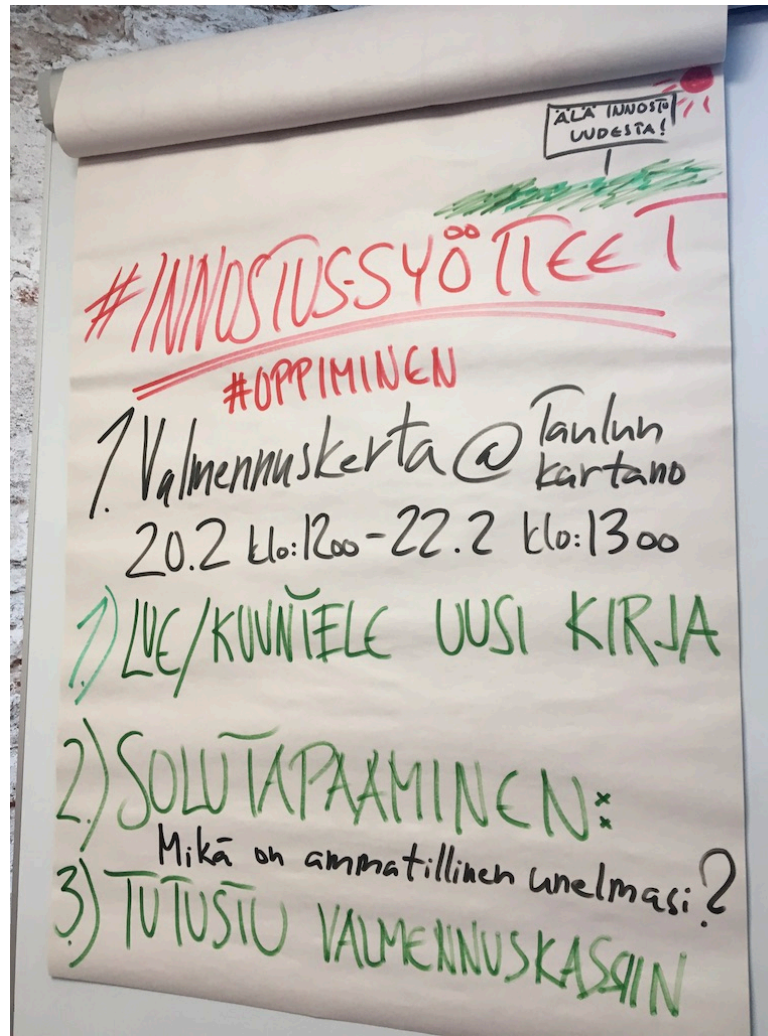 ÄLÄ INNOSTU
UUDESTA!
#INNOSTUS-SYÖTTEET
#OPPIMINEN
1. Valmennuskerta @ Taulun
kartano
20.2 klo:1200-22.2 klo:1300
1.) LUE/KUUNTELE UUSI KIRJA
2.) SOLUTAPAAMINEN:
Mikä on ammatillinen unelmasi?
3.) TUTUSTU VALMENNUSKASSIIN